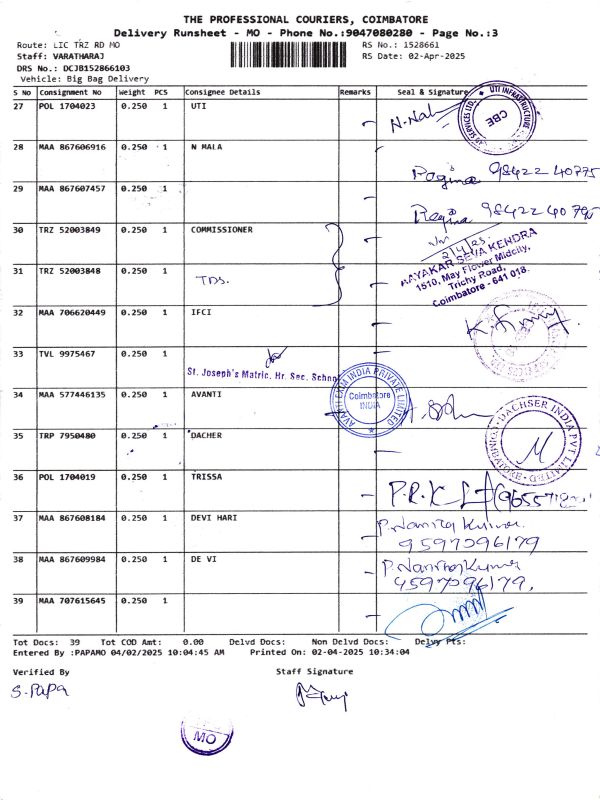 THE PROFESSIONAL COURIERS, COIMBATORE
Delivery Runsheet - MO - Phone No.:9047080280 - Page No.:3
Route: LIC TRZ RD MO RS No.: 1528661
Staff: VARATHARAJ RS Date: 02-Apr-2025
DRS No.: DCJB152866103
Vehicle: Big Bag Delivery
S No Consignment No Weight PCS Consignee Details Remarks Seal & Signature
27 POL 1704023 0.250 1 UTI
UTI INFRASTRUCTURE
SERVICES LTD.
CBE
28 MAA 867606916 0.250 1 N MALA
Regina 98422 40775
29 MAA 867607457 0.250 1
Regina 98422 40795
30 TRZ 52003849 0.250 1 COMMISSIONER
2/4/25
AAYAKAR SEVA KENDRA
1510, May Flower Midcity,
Trichy Road,
Coimbatore - 641 018.
31 TRZ 52003848 0.250 1 TDS.
32 MAA 706620449 0.250 1 IFCI
33 TVL 9975467 0.250 1
St. Joseph's Matric. Hr. Sec. School
34 MAA 577446135 0.250 1 AVANTI
AVANTI EXIM INDIA PRIVATE LIMITED
Coimbatore
INDIA
35 TRP 7950480 0.250 1 DACHER
DACHSER INDIA PVT. LIMITED
36 POL 1704019 0.250 1 TRISSA
37 MAA 867608184 0.250 1 DEVI HARI
9597096179
38 MAA 867609984 0.250 1 DE VI
4597096179.
39 MAA 707615645 0.250 1
Tot Docs: 39 Tot COD Amt: 0.00 Delvd Docs: Non Delvd Docs: Delvy Pts:
Entered By :PAPAMO 04/02/2025 10:04:45 AM Printed On: 02-04-2025 10:34:04
Verified By Staff Signature
S. Papa
MO